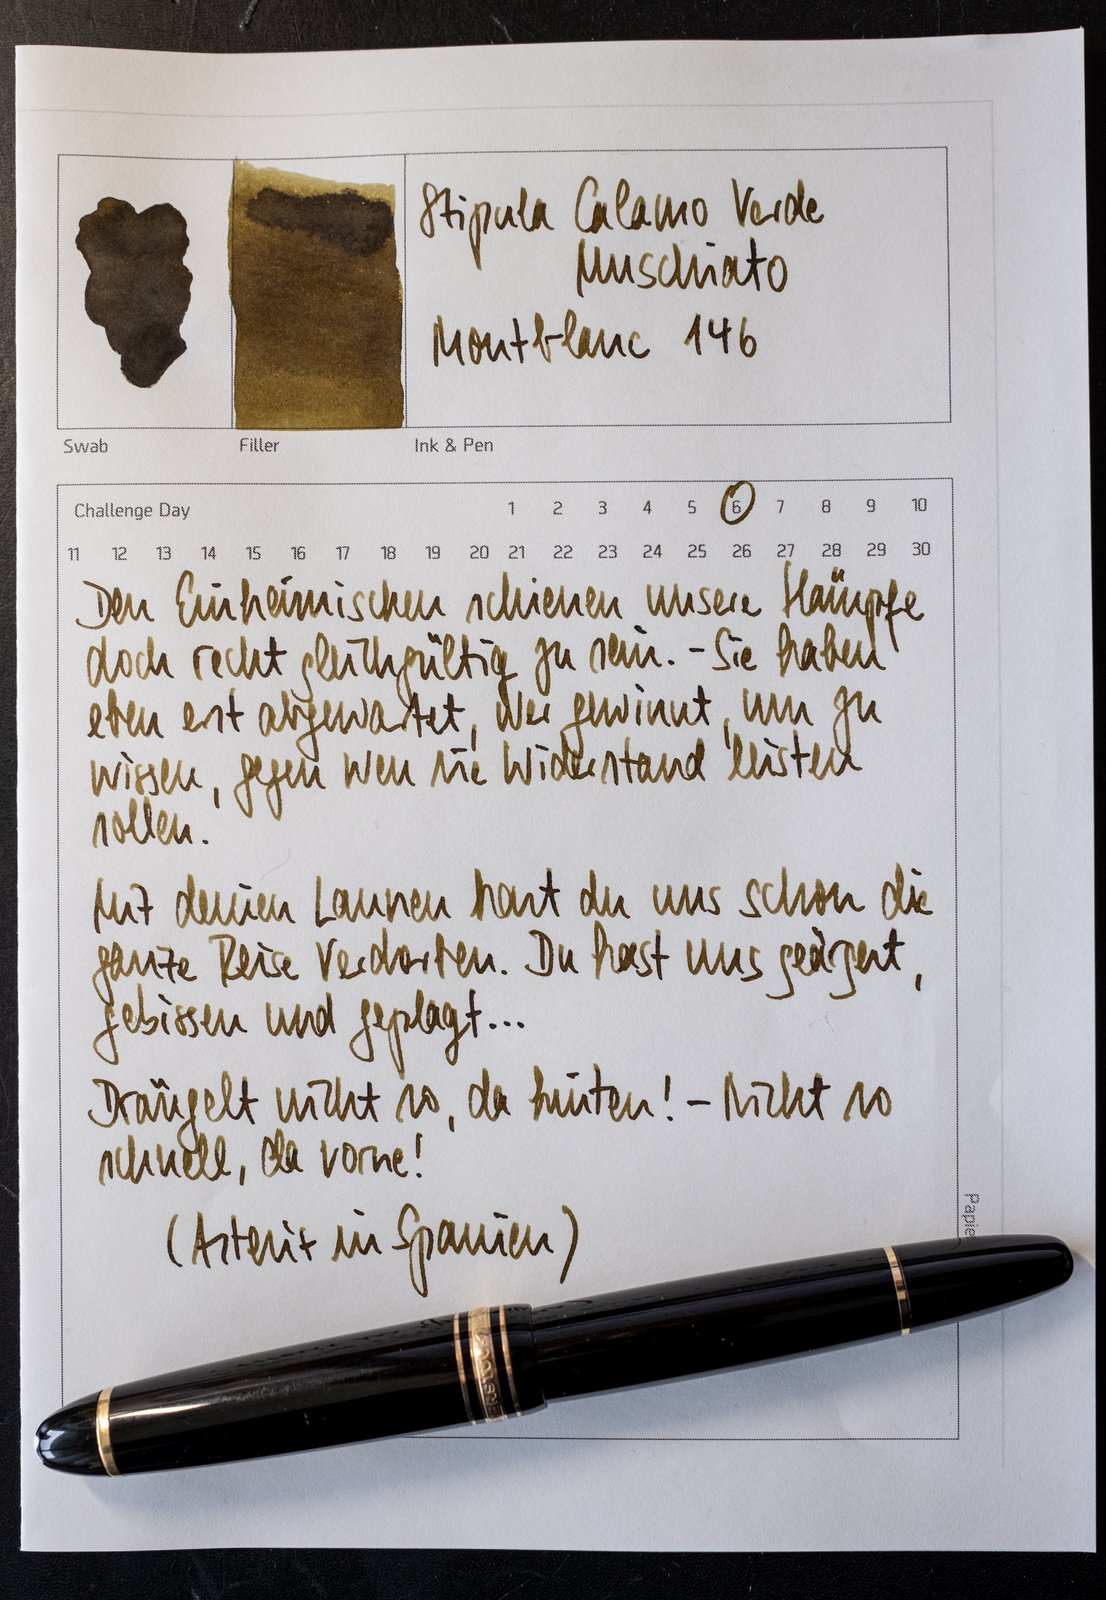 Stipula Calamo Verde
Muschiato
Montblanc 146
Swab Filler Ink & Pen
Challenge Day 1 2 3 4 5 6 7 8 9 10
11 12 13 14 15 16 17 18 19 20 21 22 23 24 25 26 27 28 29 30
Den Einheimischen schienen unsere Kämpfe
doch recht gleichgültig zu sein. - Sie haben
eben erst abgewartet, wer gewinnt, um zu
wissen, gegen wen sie Widerstand leisten
sollen.
Mit deinen Launen hast du uns schon die
ganze Reise verdorben. Du hast uns geärgert,
gebissen und geplagt...
Drängelt nicht so, da hinten! - Nicht so
schnell, da vorne!
(Asterix in Spanien)
Papie